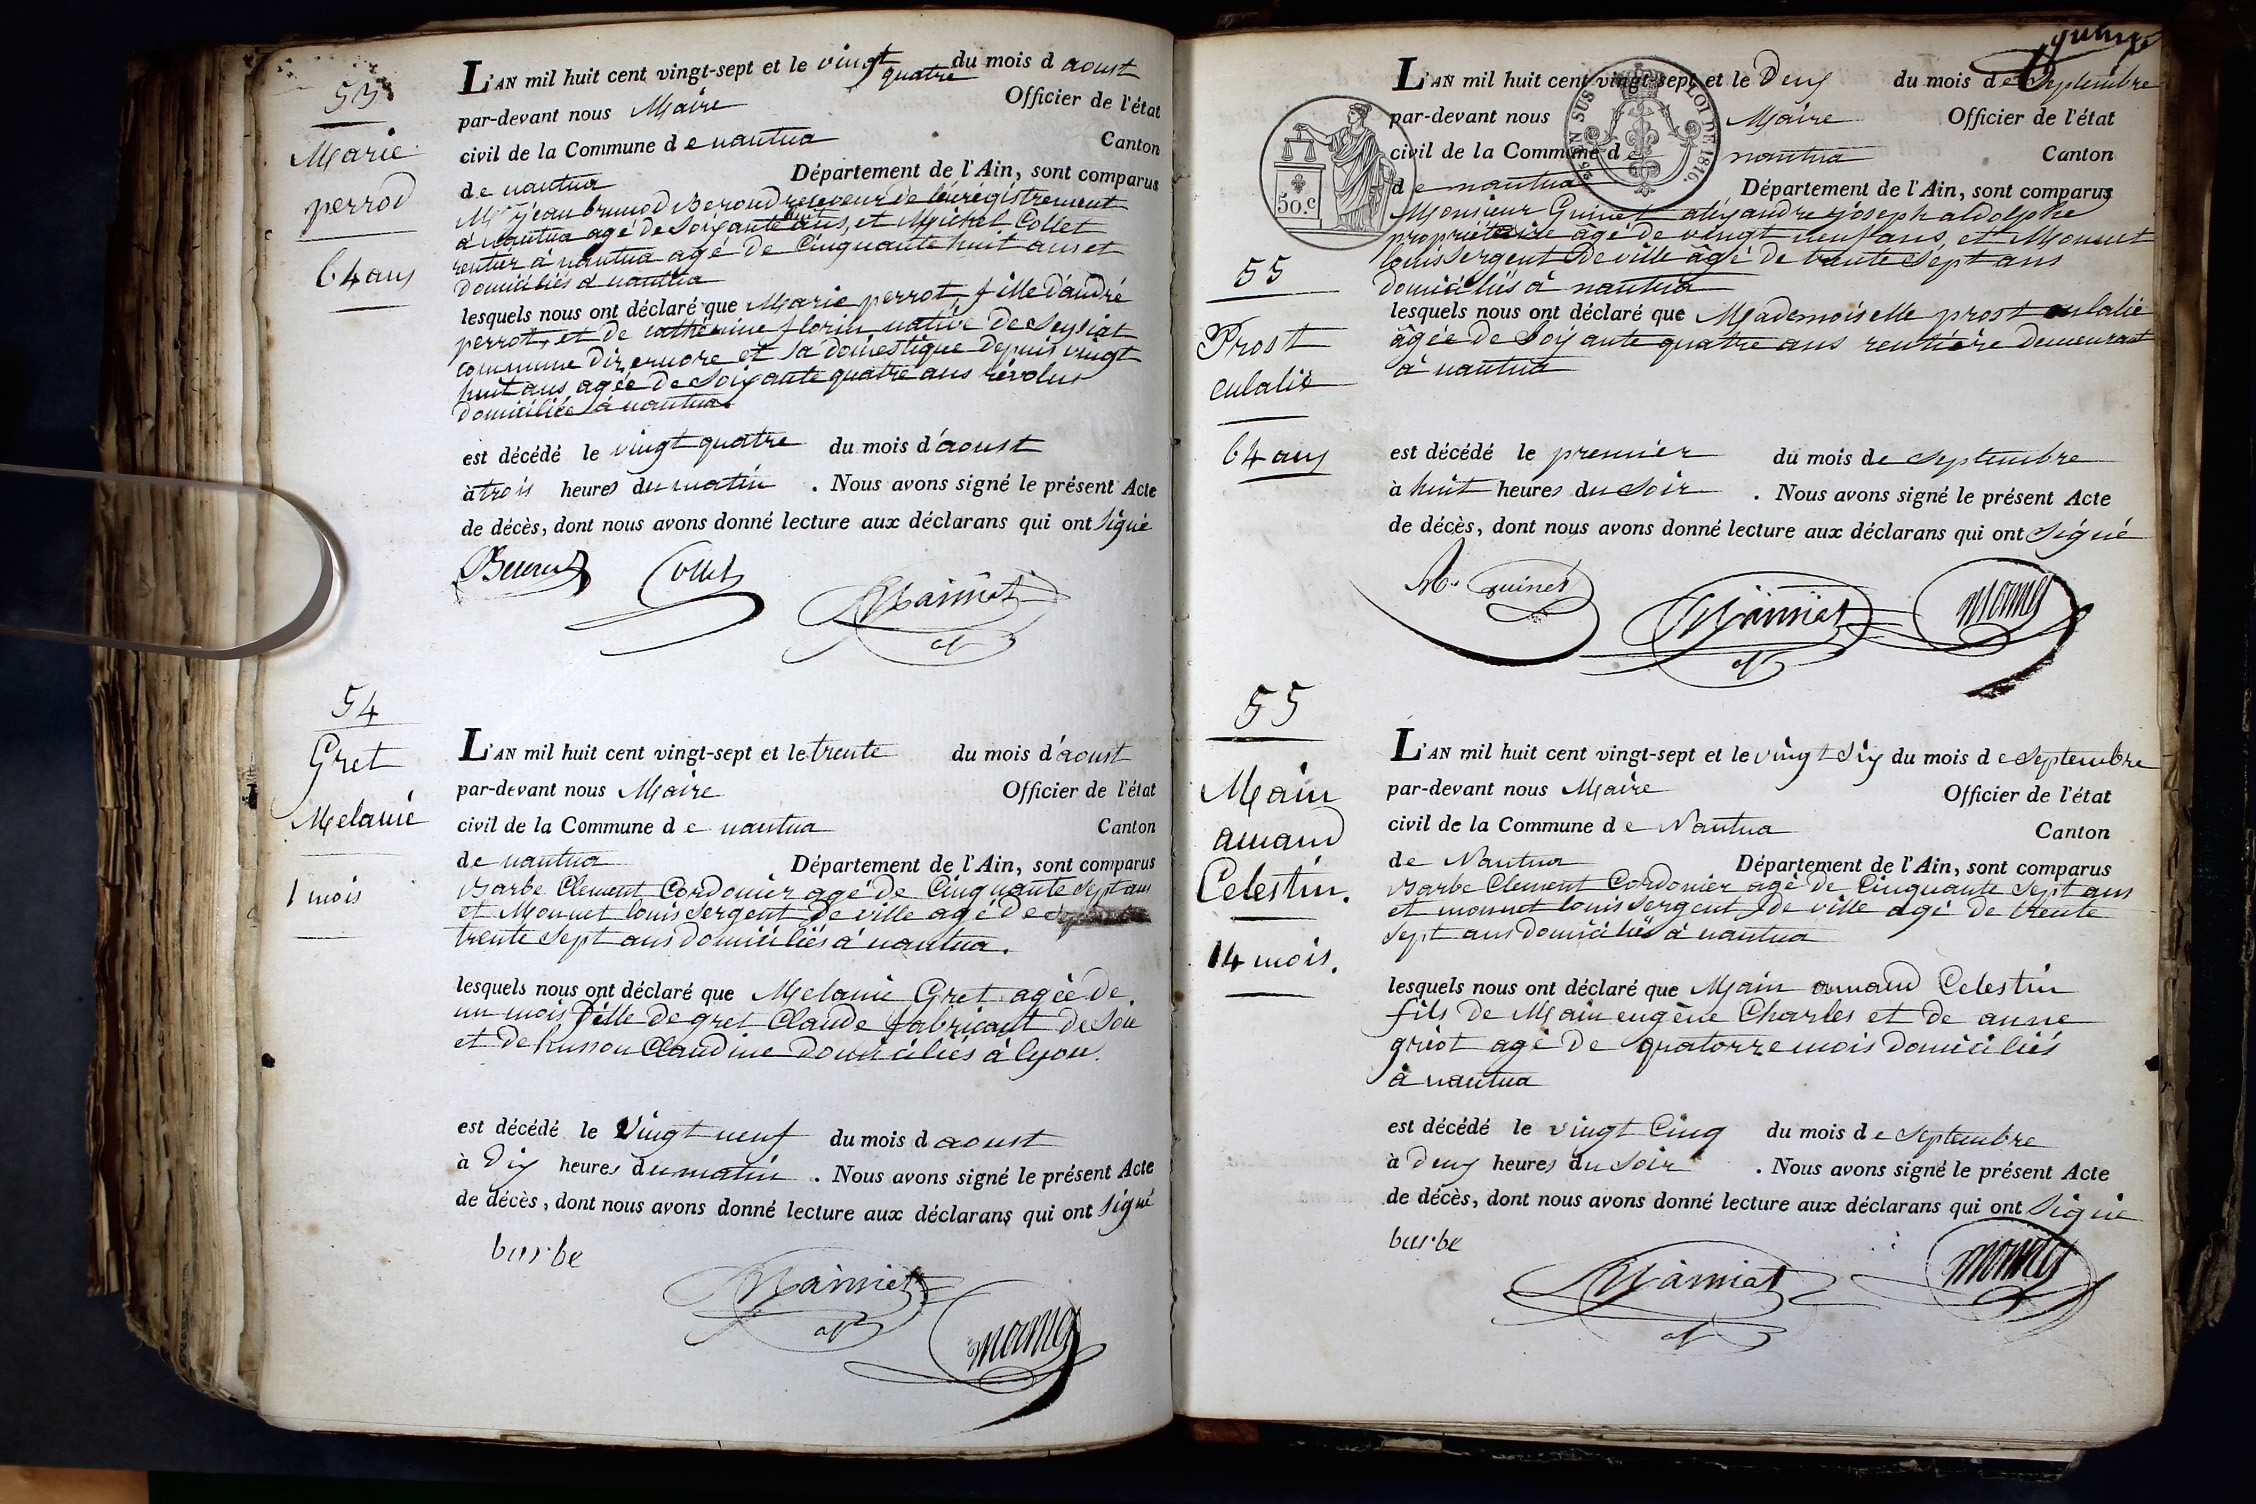 53
Marie
perrod
64 ans
L'AN mil huit cent vingt-sept et le vingt quatre du mois d aoust
par-devant nous Maire Officier de l'état
civil de la Commune d e nantua Canton
de nantua Département de l'Ain, sont comparus
Mr jean brunod Beroud receveur de l'enrégistrement
à nantua agé de Soixante huit ans, et Michel Collet
rentier à nantua agé de Cinquante huit ans et
domiciliés à nantua
lesquels nous ont déclaré que Marie perrot, fille d'andré
perrot, et de cathérine florin native de Seyssiat
commune dizernore et sa domestique depuis vingt
huit ans agée de Soixante quatre ans révolus
domiciliée à nantua.
est décédé le vingt quatre du mois d'aoust
à trois heures du matin . Nous avons signé le présent Acte
de décès, dont nous avons donné lecture aux déclarans qui ont signé
Collet
54
Gret
Melanie
1 mois
L'AN mil huit cent vingt-sept et le trente du mois d'aoust
par-devant nous Maire Officier de l'état
civil de la Commune d e nantua Canton
de nantua Département de l'Ain, sont comparus
Barbe Clement Cordonier agé de Cinquante Sept ans
et Monnet louis Sergent de ville agé de
trente Sept ans domiciliés à nantua.
lesquels nous ont déclaré que Melanie Gret agée de
un mois fille de gret Claude fabricant de Soie
et de husson Claudine domiciliés à lyon.
est décédé le Vingt neuf du mois d aoust
à Dix heures du matin . Nous avons signé le présent Acte
de décès, dont nous avons donné lecture aux déclarans qui ont signé
barbe
monnet
LOI DE 1816.
50.c
55
Prost
eulalie
64 ans
L'AN mil huit cent vingt-sept et le Deux du mois de Septembre
par-devant nous Maire Officier de l'état
civil de la Commune de nantua Canton
de nantua Département de l'Ain, sont comparus
Monsieur Guinet aléxandre joseph aldolphe
propriétaire âgé de vingt neuf ans, et Monnet
louis Sergent De ville âgé de trente Sept ans
domiciliés à nantua
lesquels nous ont déclaré que Mademoiselle prost eulalie
âgée de Soixante quatre ans rentière demeurant
à nantua
est décédé le premier du mois de Septembre
à huit heures du Soir . Nous avons signé le présent Acte
de décès, dont nous avons donné lecture aux déclarans qui ont Signé
monnet
55
Main
amand
Celestin.
14 mois.
L'AN mil huit cent vingt-sept et le vingt Six du mois d e Septembre
par-devant nous Maire Officier de l'état
civil de la Commune d e Nantua Canton
de Nantua Département de l'Ain, sont comparus
Barbe Clement Cordonier agé de Cinquante Sept ans
et monnet louis Sergent de ville agé de trente
Sept ans domiciliés à nantua
lesquels nous ont déclaré que Main amand Celestin
fils de Main eugène Charles et de anne
griot agé de quatorze mois domiciliés
à nantua
est décédé le vingt Cinq du mois d e Septembre
à Deux heures du Soir . Nous avons signé le présent Acte
de décès, dont nous avons donné lecture aux déclarans qui ont Signé
barbe
monnet